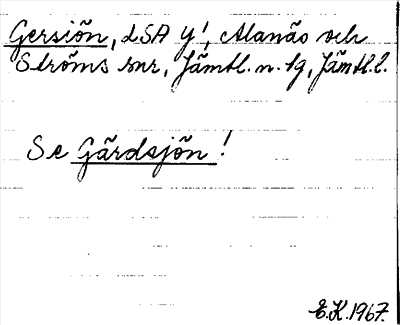 Gersiön, LSA Y!, Alanäs och
Ströms snr, Jämtl. n. tg, Jämtl. l.
Se Gärdsjön!
E.K. 1967.